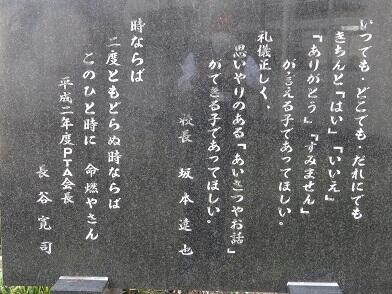 いつでも・どこでも・だれにでも
きちんと「はい」「いいえ」
「ありがとう」「すみません」
が・言える子であってほしい。
礼儀正しく、
思いやりのある「あいさつやお話」
ができる子であってほしい。
校長 坂本達也
時ならば
二度ともどらぬ時ならば
このひと時に 命燃やさん
平成二年度PTA会長
長谷寛司